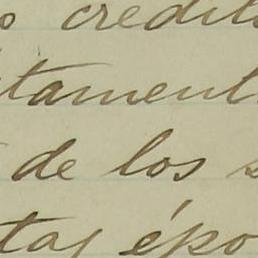 s credito
tament
de los s
tas épo